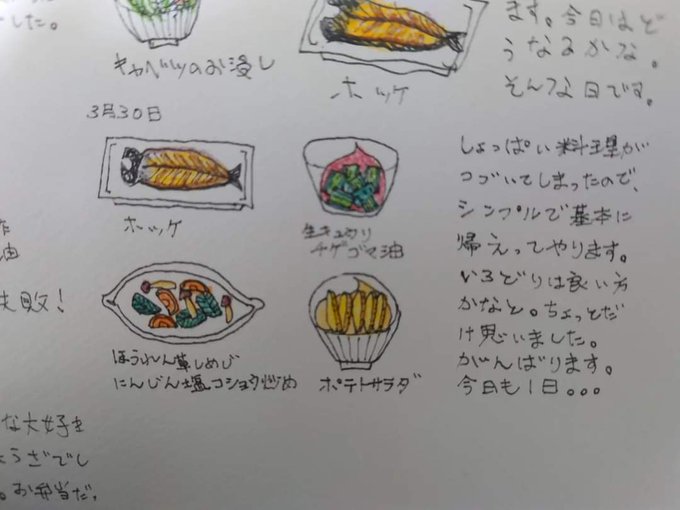 した。
キャベツのお浸し
ホッケ
ます。今日はど
うなるかな。
そんな日です。
3月30日
ホッケ
生キュウリ
チゲゴマ油
ほうれん草しめじ
にんじん塩コショウ炒め
ポテトサラダ
しょっぱい料理が
コヅいてしまったので、
シンプルで基本に
帰えってやります。
いろどりは良い方
かなと。ちょっとだ
け思いました。
がんばります。
今日も1日。。。
油
失敗!
な大好き
ようざでし
。お弁当だ、